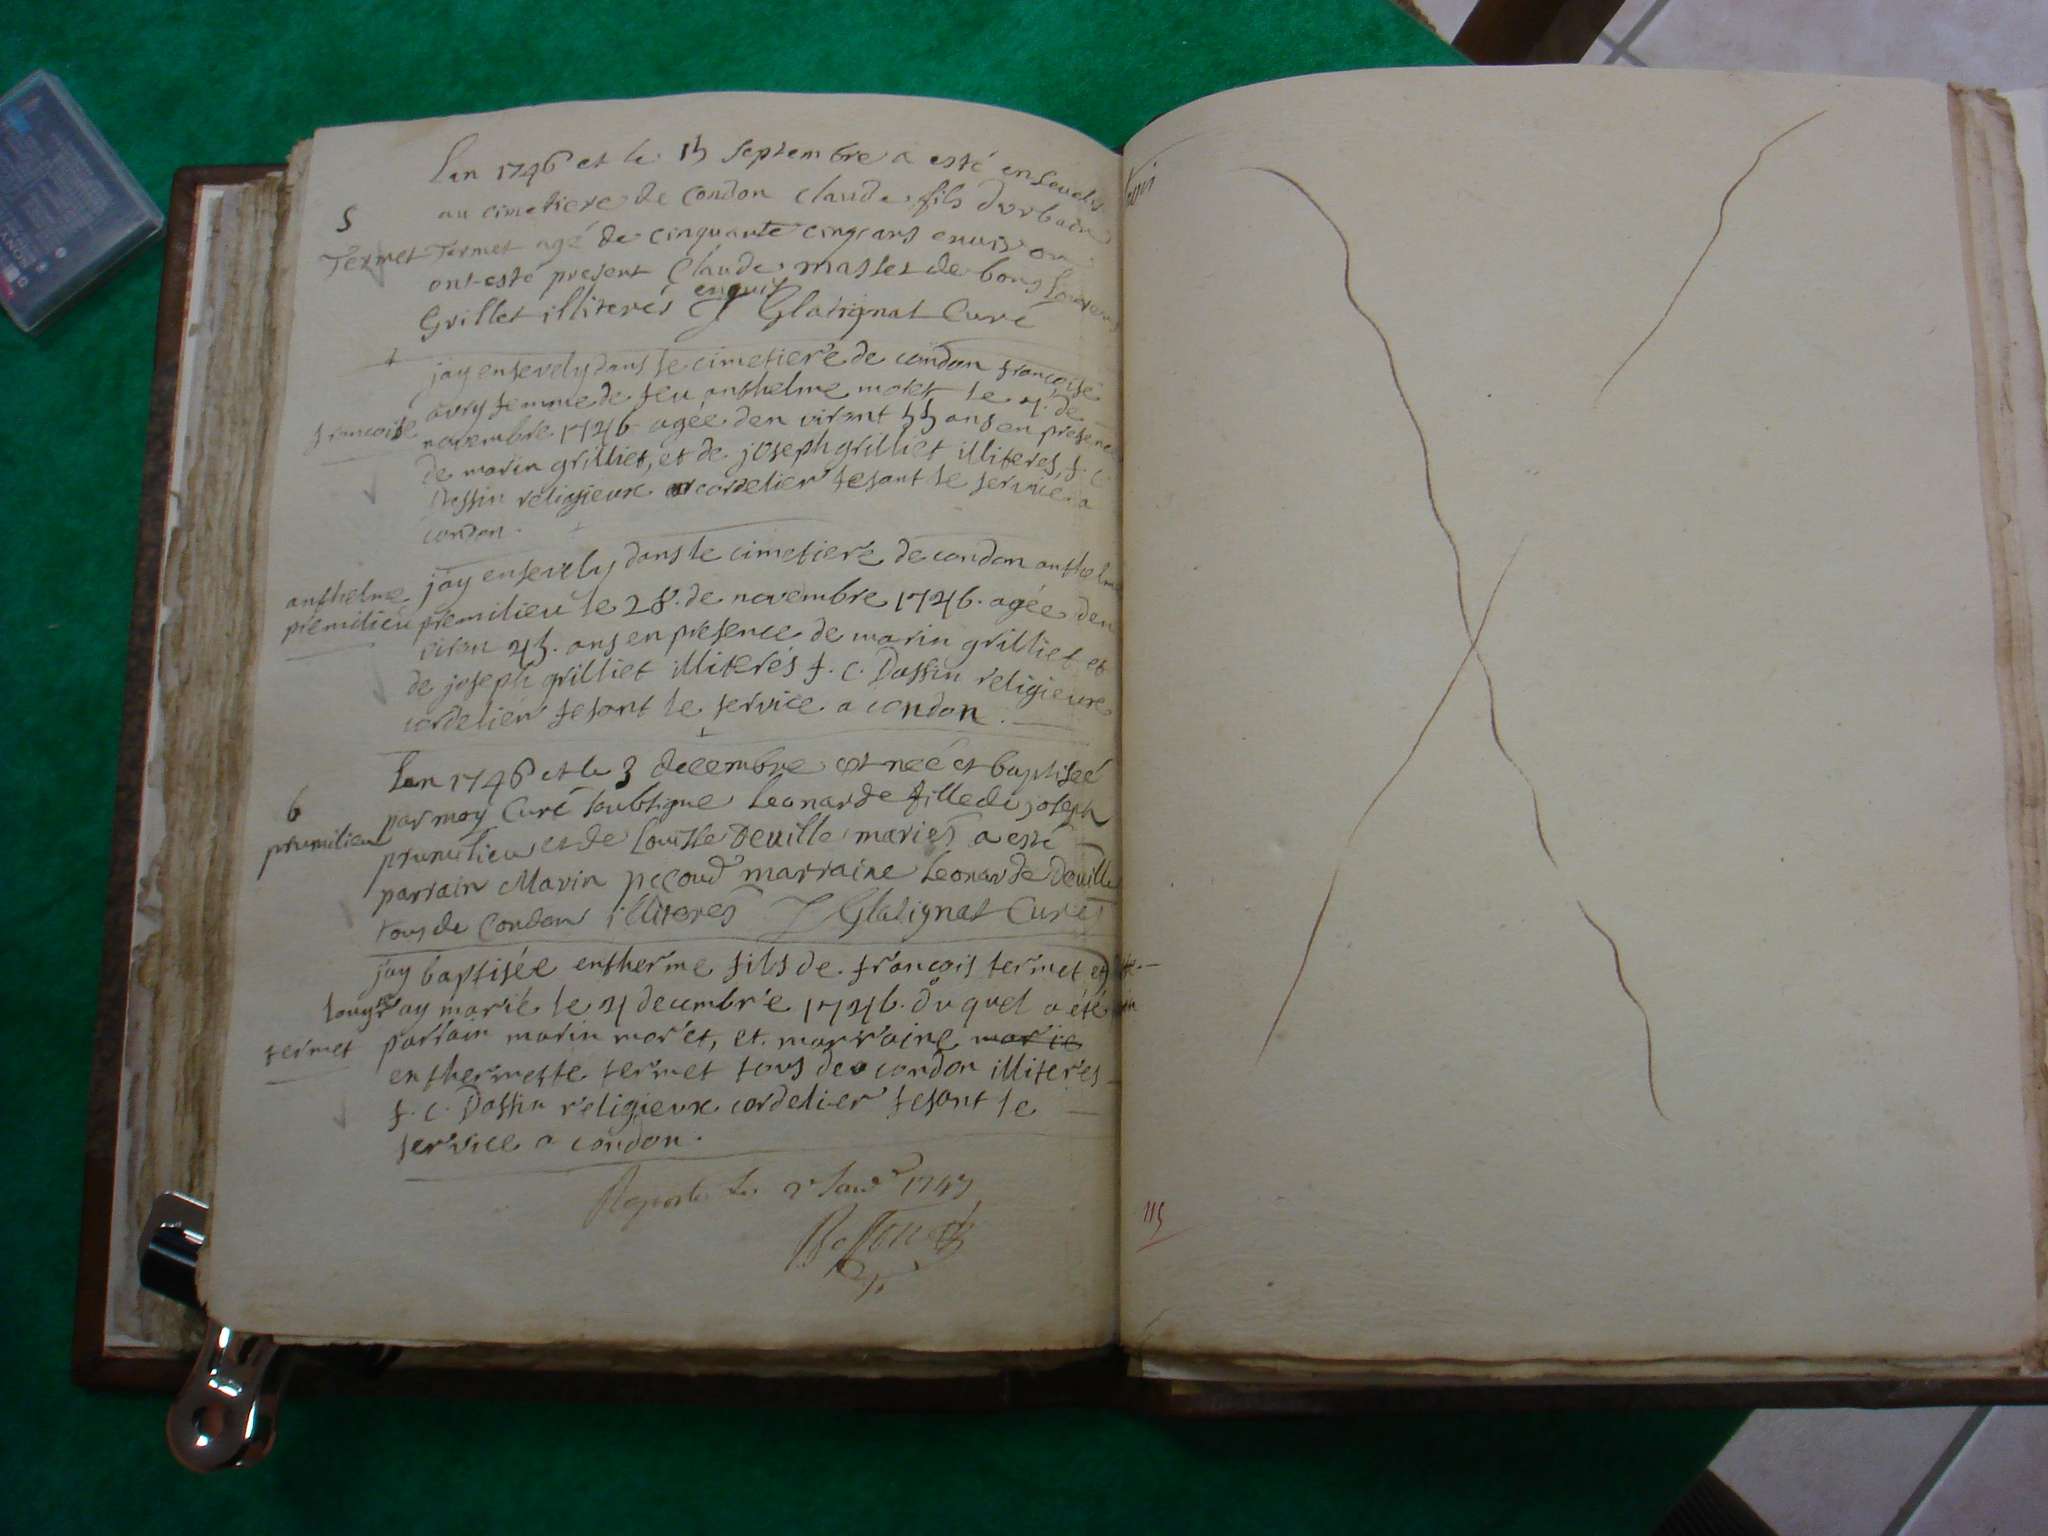 Lan 1746 et le 15 septembre a esté ensevelis
au cimetiere de Condon Claude fils durbain
5
Termet
Termet agé de cinquante cinq ans environ
ont esté present Claude masset de bons
enquis
Grillet illiterés Glatignat Curé
jay ensevely dans le cimetiere de condon francoise
avry femme de feu anthelme moret le 4 de
francoise
novembre 1746 agée den viront 55 ans en presence
de marin grilliet, et de joseph grilliet illiterés, f. c.
Dassin religieux cordelier fesant le service a
condon.
jay ensevely dans le cimetiere de condon anthelme
anthelme
premilieu
premilieu le 28. de novembre 1746. agée den
viron 45. ans en presence de marin grilliet et
de joseph grilliet illiterés f. c. Dassin religieux
cordelier fesant le service a condon.
Lan 1746 et le 3 decembre est neé et baptiseé
6
prumilieu
par moy Curé soubsigne Leonarde fille de joseph
prumilieu et de Louisse Deuille mariés a esté
parrain Marin pecoud marraine Leonarde Deuille
tous de Condon illiterés J Glatignat Curé
jay baptisée entherme fils de francois termet et
ay marié le 4 decembre 1746. du quel a été
termet
parrain marin moret, et marraine marie
enthermette termet tous de condon illiterés
f. c. Dassin religieux cordelier fesant le
service a condon.
le 2 Janvr 1747
115